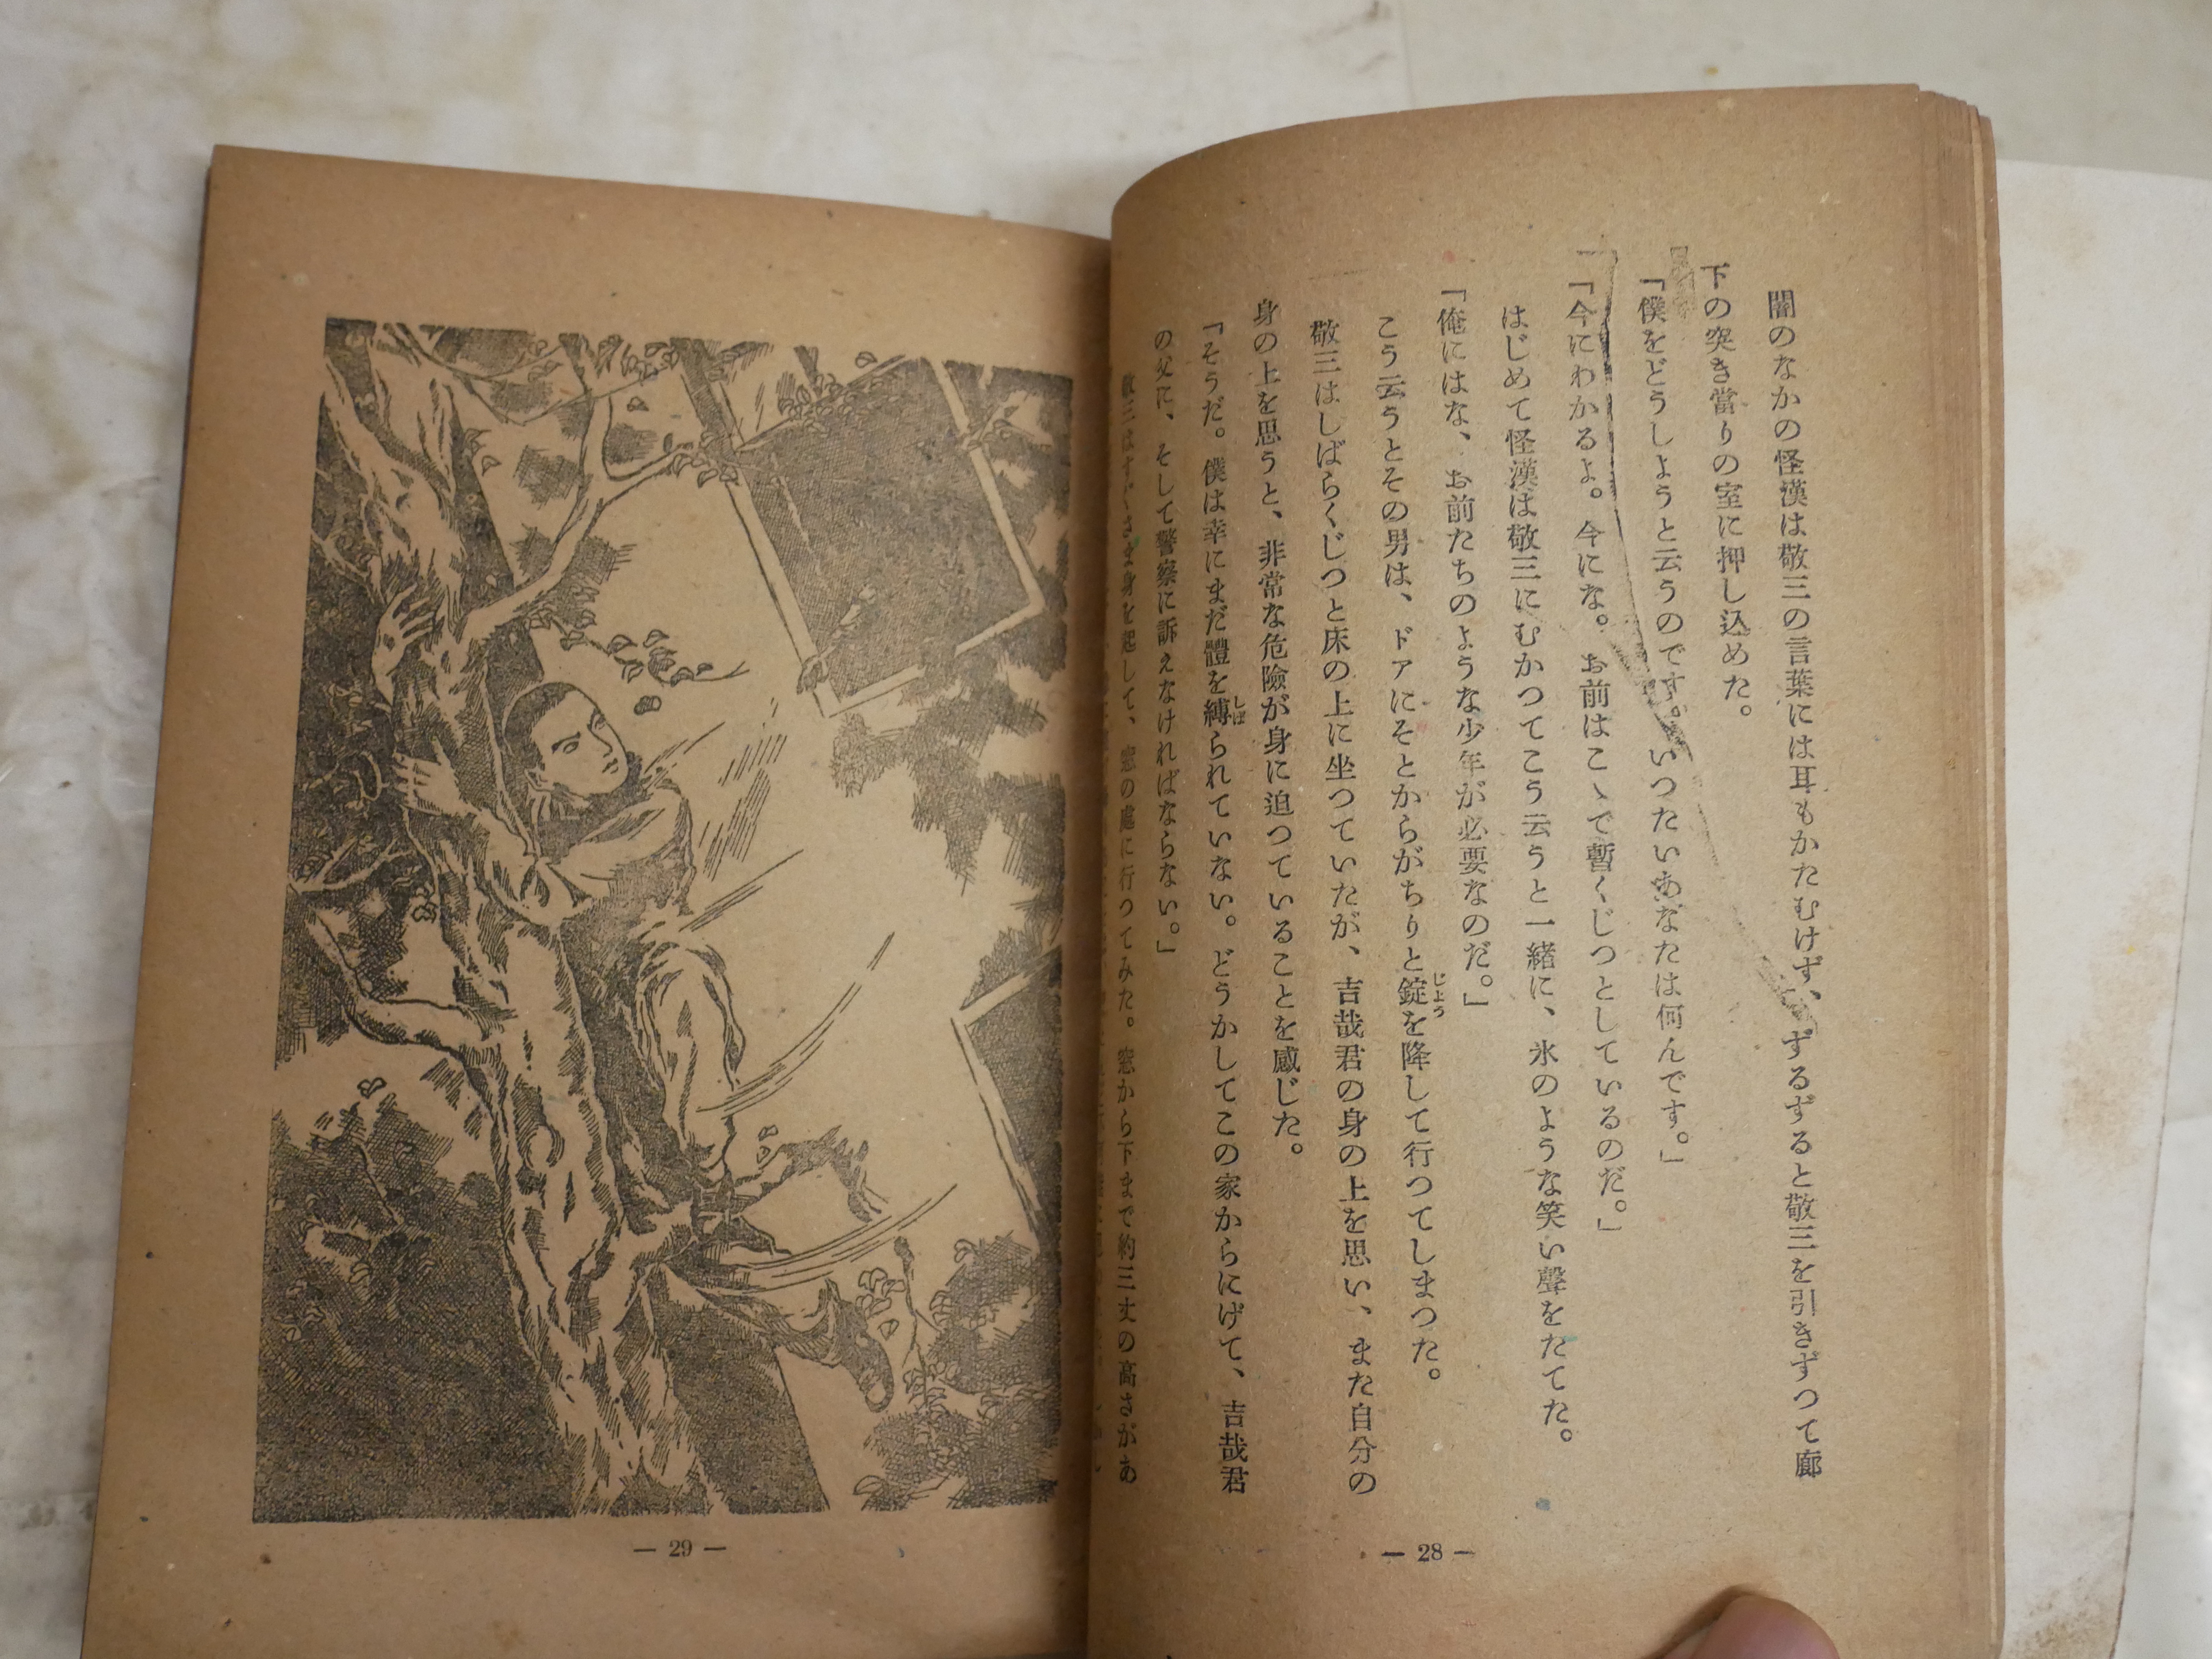 闇のなかの怪漢は敬三の言葉には耳もかたむけず、ずるずると敬三を引きずつて廊
下の突き當りの室に押し込めた。
「僕をどうしようと云うのです。いつたいあなたは何んです。」
「今にわかるよ。今にな。お前はこゝで暫くじつとしているのだ。」
はじめて怪漢は敬三にむかつてこう云うと一緒に、氷のような笑い聲をたてた。
「俺にはな、お前たちのような少年が必要なのだ。」
こう云うとその男は、ドアにそとからがちりと錠を降して行つてしまつた。
じよう
敬三はしばらくじつと床の上に坐つていたが、吉哉君の身の上を思い、また自分の
身の上を思うと、非常な危險が身に迫つていることを感じた。
「そうだ。僕は幸にまだ體を縛られていない。どうかしてこの家からにげて、吉哉君
しば
の父に、そして警察に訴えなければならない。」
敬三はすぐさま身を起して、窓の處に行つてみた。窓から下まで約三丈の高さがあ
— 28 —
— 29 —